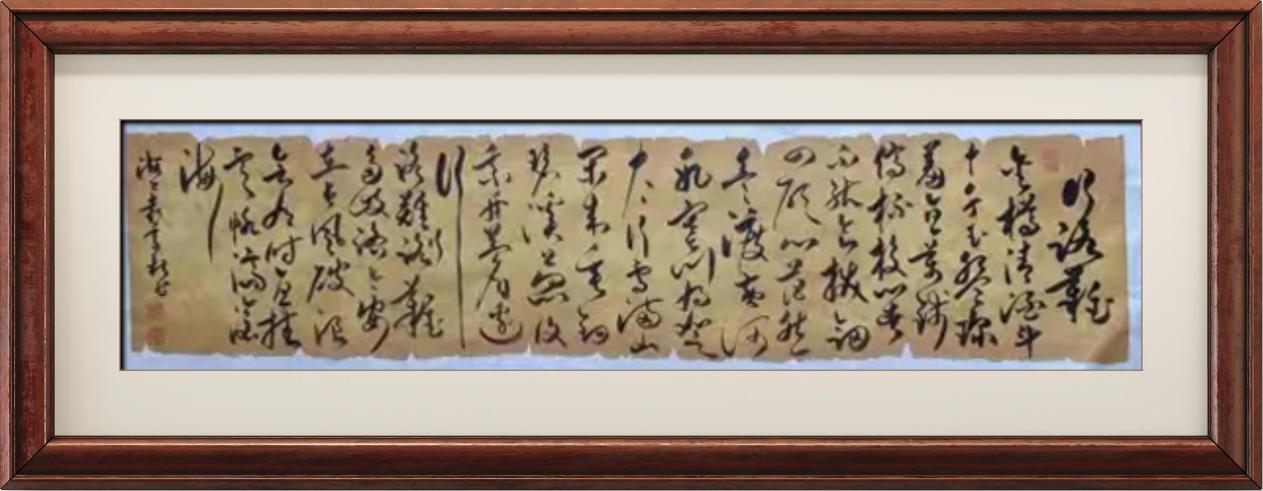 行路難
金樽清酒斗
十千玉盤珍
羞直萬錢
停杯投箸
不能食拔劍
四顧心茫然
欲渡黃河
冰塞川將登
太行雪滿山
閑來垂釣
碧溪上忽復
乘舟夢日邊
行
路難行路難
多歧路今安
在長風破浪
會有時直掛
雲帆濟滄
海